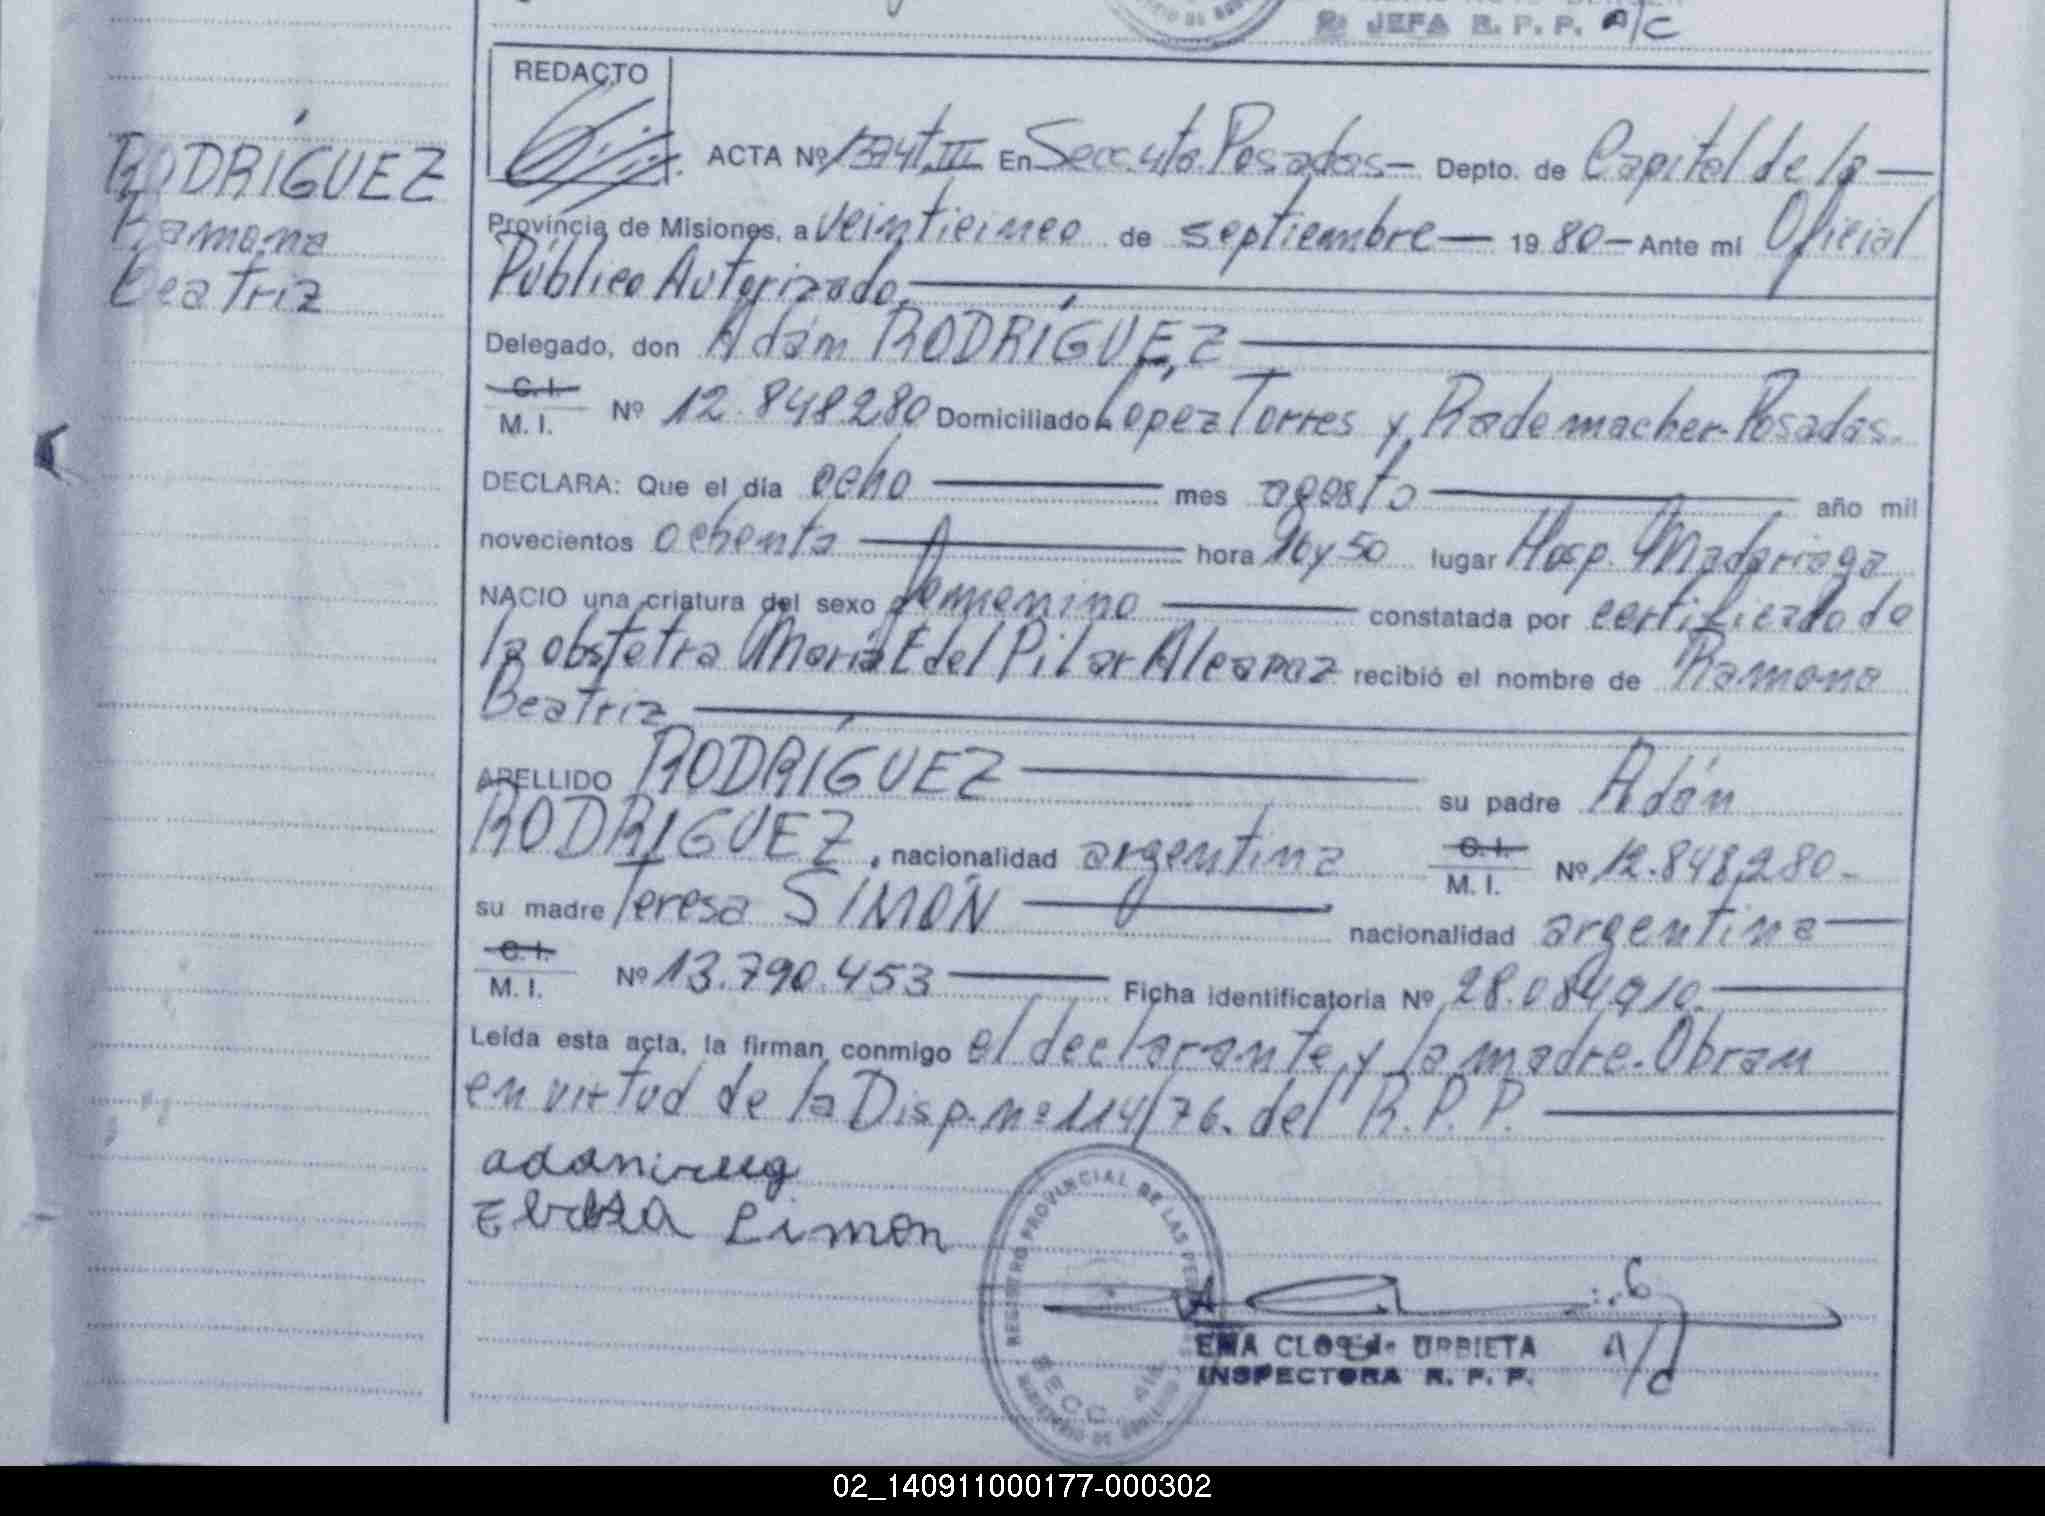 2ª JEFA R. P. P. A/C
REDACTO
RODRÍGUEZ
Ramona
Beatriz
ACTA Nº 1374 T.III En Secc. 4ta. Posadas- Depto. de Capital de la
Provincia de Misiones, a veinticinco de septiembre 1980 Ante mi Oficial
Público Autorizado.
Delegado, don Adán RODRÍGUEZ,
C. I.
M. I. Nº 12.848.280 Domiciliado López Torres y Rademacher-Posadas.
DECLARA: Que el día ocho mes agosto año mil
novecientos ochenta hora 16 y 50 lugar Hosp. Madariaga
NACIO una criatura del sexo femenino constatada por certificado de
la obstetra María E del Pilar Alcaraz recibió el nombre de Ramona
Beatriz
APELLIDO RODRÍGUEZ su padre Adán
RODRÍGUEZ, nacionalidad argentina C. I. M. I. Nº 12.848.280-
su madre Teresa SIMÓN nacionalidad argentina
C. I.
M. I. Nº 13.790.453 Ficha identificatoria Nº 28.084.910.
Leída esta acta, la firman conmigo el declarante y la madre. Obran
en virtud de la Disp. nº 114/76. del R.P.P.
Limon
REGISTRO PROVINCIAL DE LAS PER
SECC. 4ta
MINISTERIO DE GOBIERNO
EMA URBIETA A/C
INSPECTORA R. P. P.
02_140911000177-000302